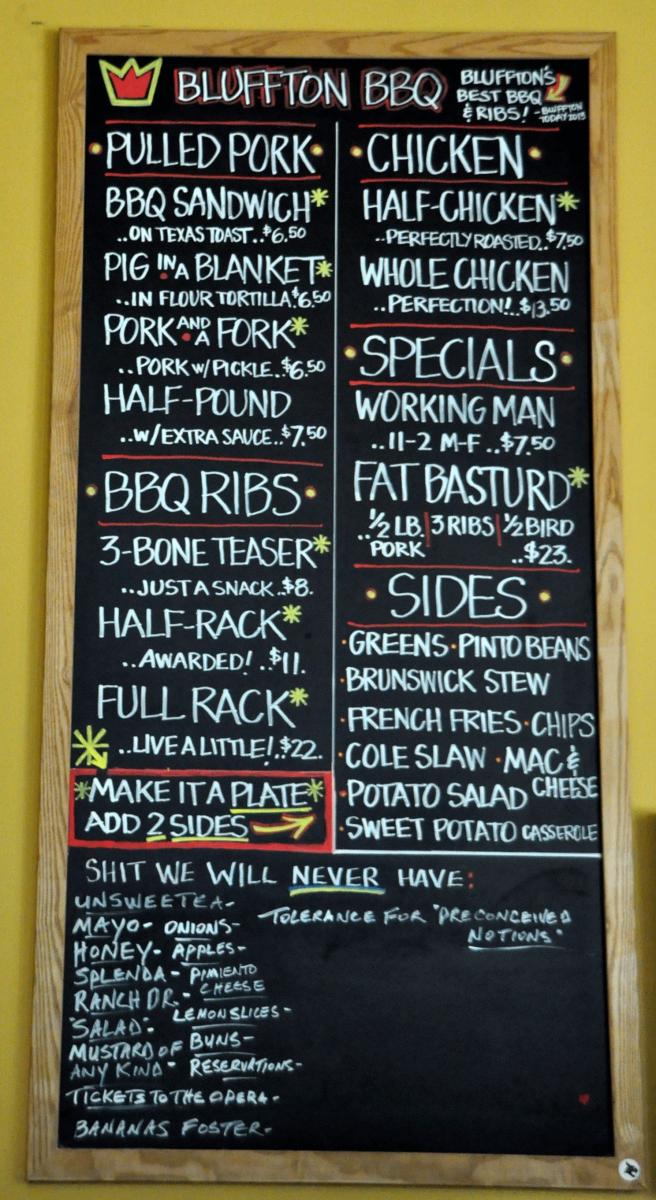 BLUFFTON BBQ
BLUFFTON'S
BEST BBQ
& RIBS! - BLUFFTON
TODAY 2013
PULLED PORK
BBQ SANDWICH*
..ON TEXAS TOAST..$6.50
PIG IN A BLANKET*
..IN FLOUR TORTILLA.$6.50
PORK AND A FORK*
..PORK W/PICKLE..$6.50
HALF-POUND
..W/EXTRA SAUCE..$7.50
BBQ RIBS
3-BONE TEASER*
..JUST A SNACK..$8.
HALF-RACK*
..AWARDED!..$11.
FULL RACK*
..LIVE A LITTLE!..$22.
*MAKE IT A PLATE*
ADD 2 SIDES
CHICKEN
HALF-CHICKEN*
..PERFECTLY ROASTED..$7.50
WHOLE CHICKEN
..PERFECTION!..$13.50
SPECIALS
WORKING MAN
..11-2 M-F..$7.50
FAT BASTURD*
..½ LB. | 3 RIBS | ½ BIRD
PORK ..$23.
SIDES
·GREENS·PINTO BEANS
·BRUNSWICK STEW
·FRENCH FRIES·CHIPS
·COLE SLAW ·MAC &
CHEESE
·POTATO SALAD
·SWEET POTATO CASSEROLE
SHIT WE WILL NEVER HAVE:
UNSWEETEA-
MAYO- ONIONS-
HONEY- APPLES-
SPLENDA- PIMIENTO
CHEESE
RANCH DR.- LEMON SLICES-
"SALAD"-
MUSTARD OF BUNS-
ANY KIND- RESERVATIONS-
TICKETS TO THE OPERA-
BANANAS FOSTER-
TOLERANCE FOR "PRECONCEIVED
NOTIONS"